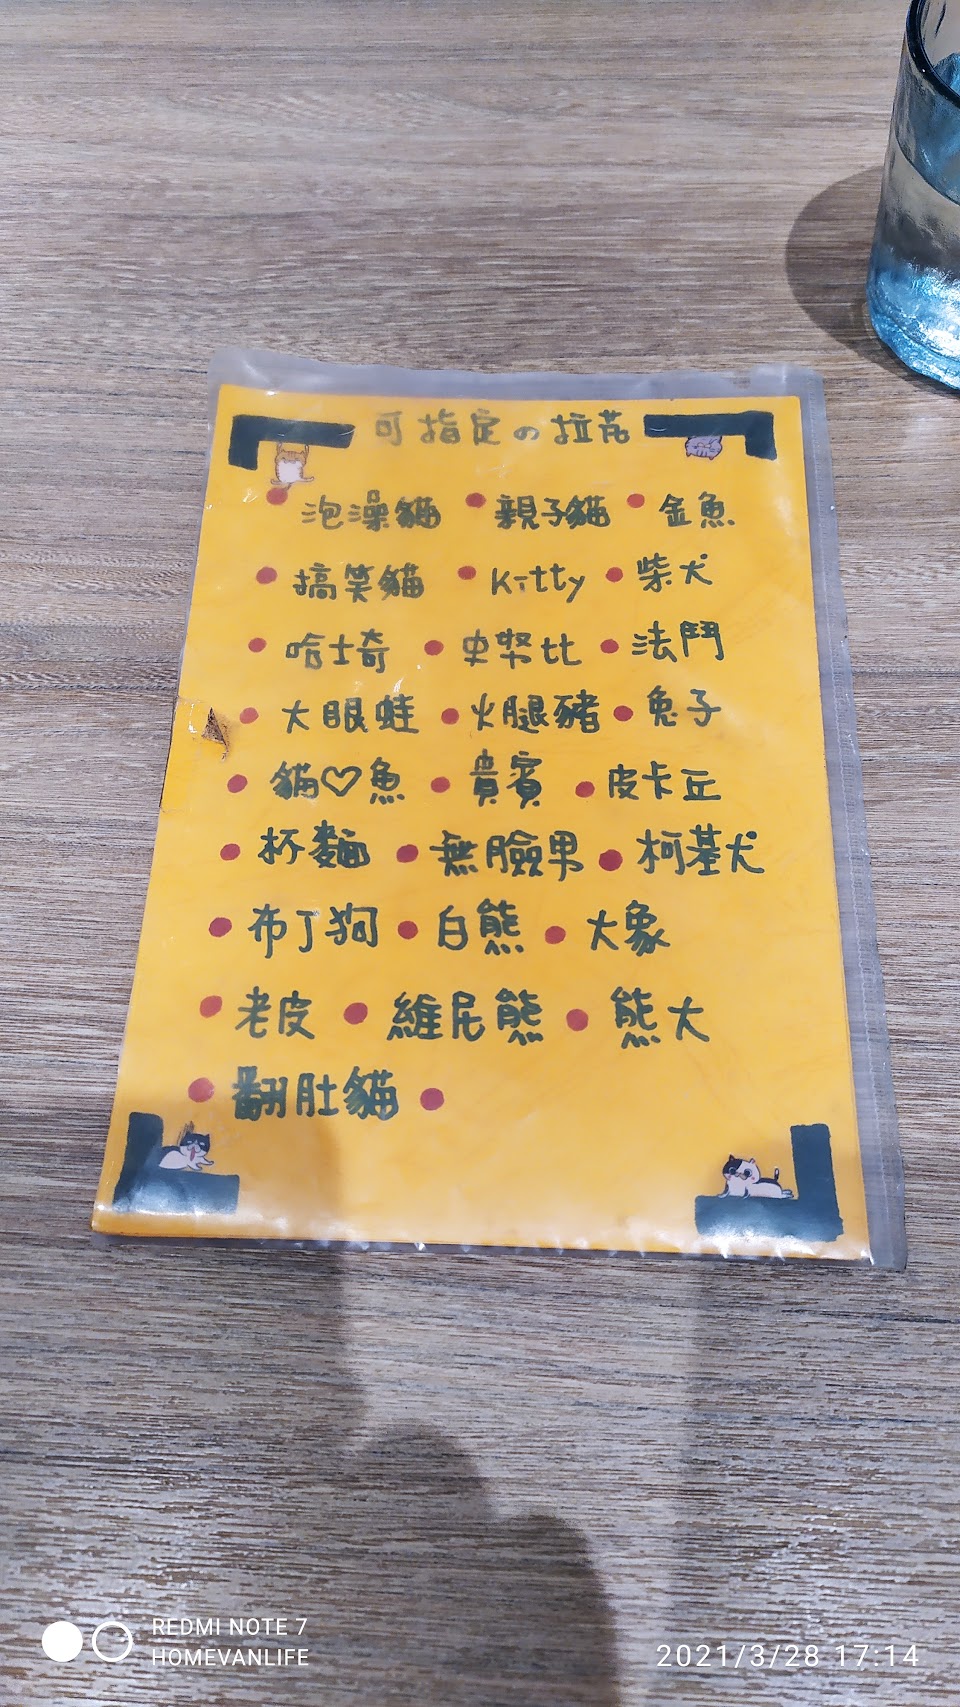 可指定の拉花
● 泡澡貓 ● 親子貓 ● 金魚
● 搞笑貓 ● Kitty ● 柴犬
● 哈士奇 ● 史努比 ● 法鬥
● 大眼蛙 ● 火腿豬 ● 兔子
● 貓♡魚 ● 貴賓 ● 皮卡丘
● 杯麵 ● 無臉男 ● 柯基犬
● 布丁狗 ● 白熊 ● 大象
● 老皮 ● 維尼熊 ● 熊大
● 翻肚貓 ●
REDMI NOTE 7
HOMEVANLIFE
2021/3/28 17:14